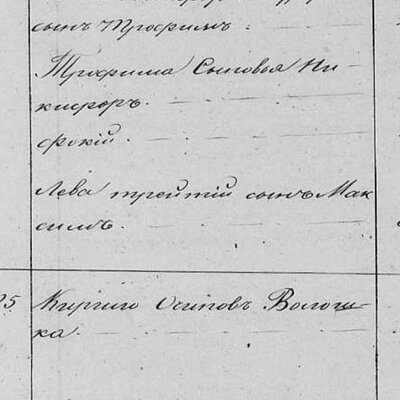 сынъ Трофимъ
Трофима Сыновья Ни-
кифоръ.
фокій.
Лева третій сынъ Мак
симъ.
25 Кирило Осиповъ Волош-
ка.